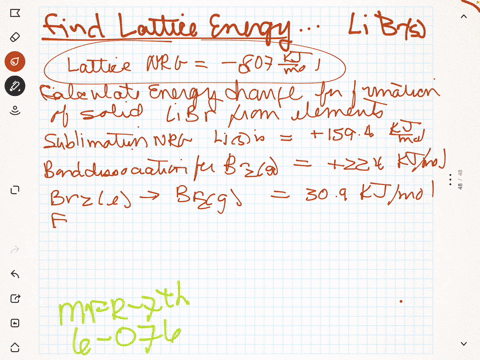 Find Lattice Energy... LiBr(s)
Lattice NRG = -807 KJ/mol
Calculate Energy change for formation
of solid LiBr from elements
Sublimation NRG Li(s) is = +159.4 KJ/mol
Bond dissociation for Br2(g) = +224 KJ/mol
Br2(l) → Br2(g) = 30.9 KJ/mol
E
7th
6-076